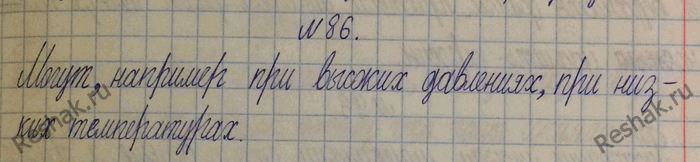 №86.
Могут, например при высоких давлениях, при низ-
ких температурах.
Reshak.ru
Reshak.ru